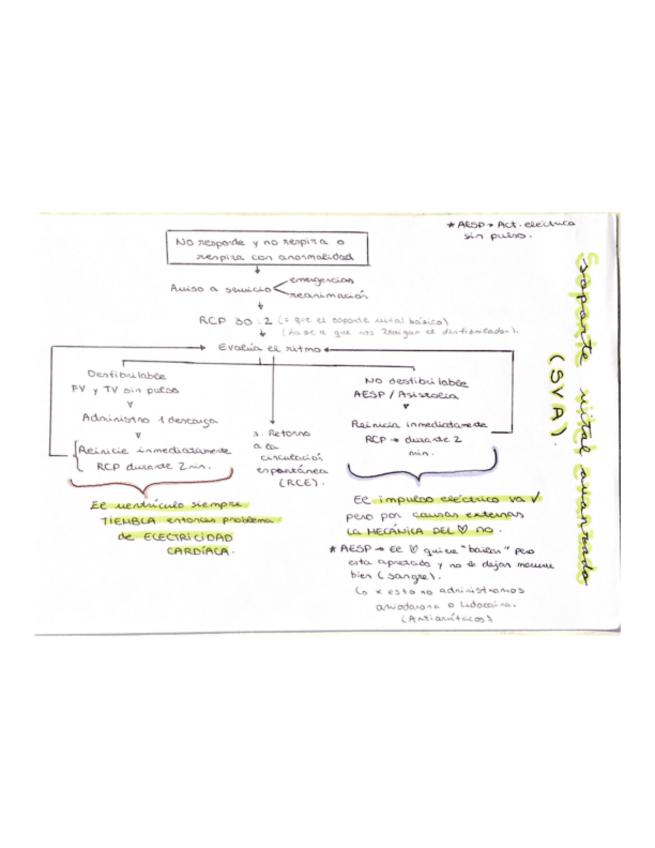 * AESP → Act. eléctrica
sin pulso.
Soporte vital avanzado
(SVA).
No responde y no respira o
respira con anormalidad
Aviso a servicio
emergencias
reanimación
RCP 30:2 (= que el soporte vital básico)
(hasta que nos traigan el desfibrilador).
Evalúa el ritmo
Desfibrilable
FV y TV sin pulso
Administro 1 descarga
Reinicie inmediatamente
RCP durante 2 min.
El ventrículo siempre
TIEMBLA entonces problema
de ELECTRICIDAD
CARDÍACA.
3. Retorno
a la
circulación
espontánea
(RCE).
No desfibrilable
AESP / Asistolia
Reinicia inmediatamente
RCP → durante 2
min.
El impulso eléctrico va ✓
pero por causas externas
LA MECÁNICA DEL ♡ no.
* AESP → El ♡ quiere "bailar" pero
esta apretado y no le dejan moverse
bien (sangre).
↳ x esto no administramos
amiodarona o lidocaína.
(Antiarrítmicos)